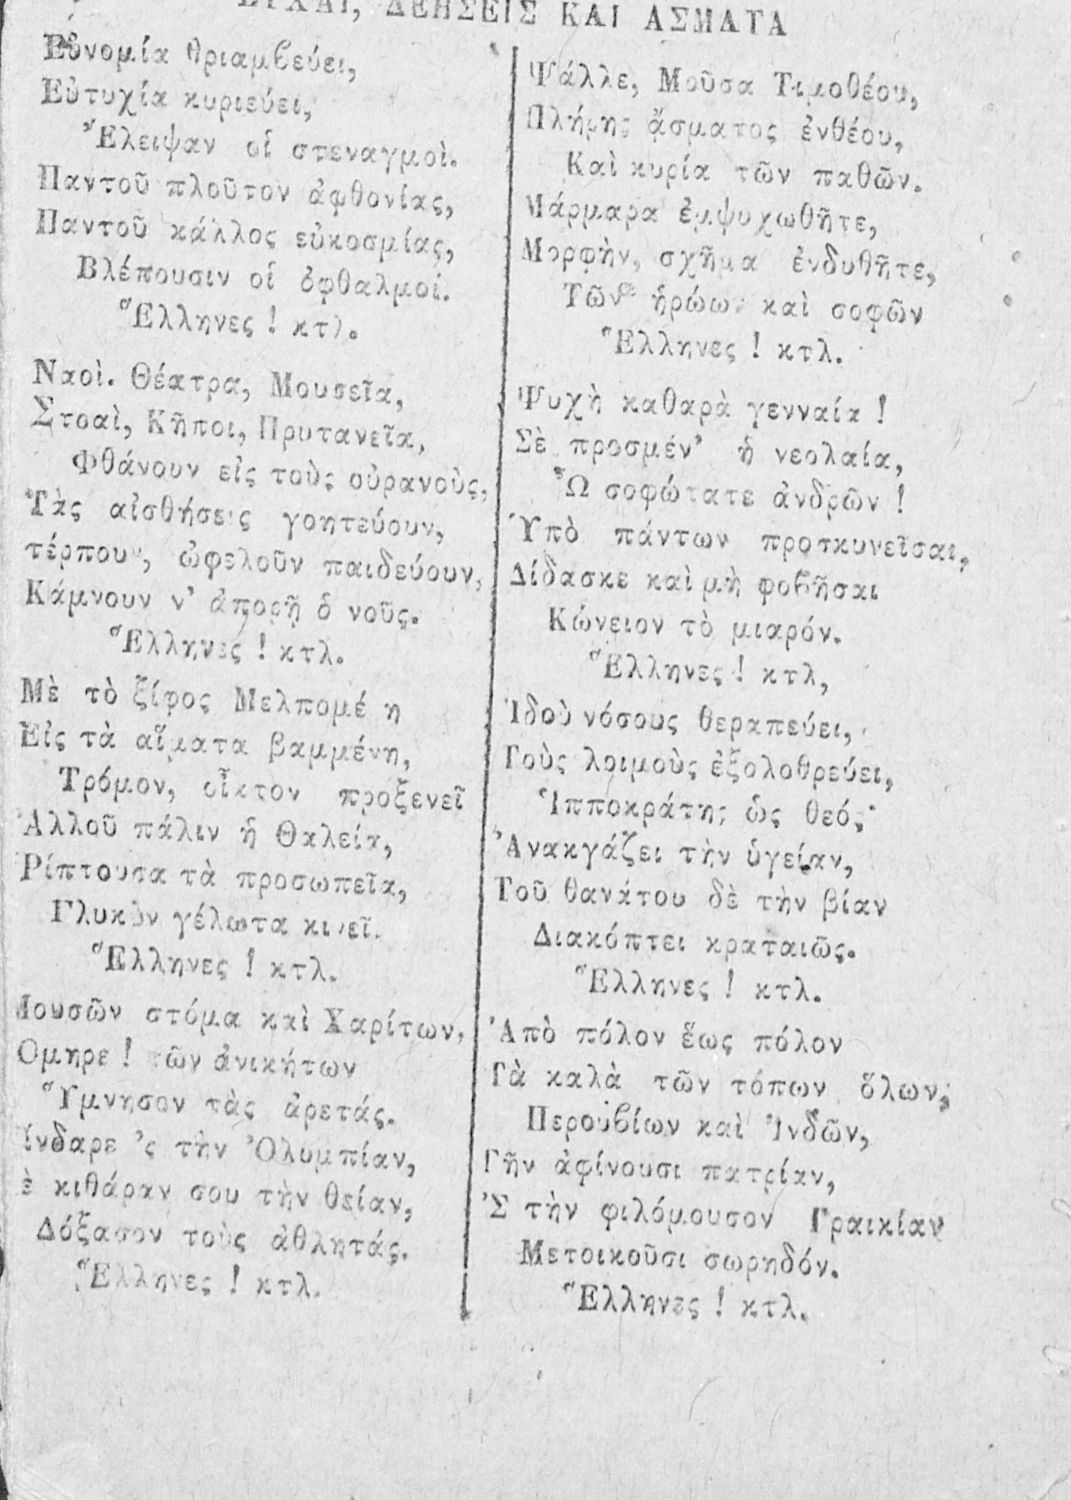 ΕΥΧΑΙ, ΔΕΗΣΕΙΣ ΚΑΙ ΑΣΜΑΤΑ
Εὐνομία θριαμβεύει,
Εὐτυχία κυριεύει,
Ἔλειψαν οἱ στεναγμοὶ.
Παντοῦ πλοῦτον ἀφθονίας,
Παντοῦ κάλλος εὐκοσμίας,
Βλέπουσιν οἱ ὀφθαλμοί.
Ἕλληνες ! κτλ.
Ναοὶ. Θέατρα, Μουσεῖα,
Στοαὶ, Κῆποι, Πρυτανεῖα,
Φθάνουν εἰς τοὺς οὐρανοὺς,
Τὰς αἰσθήσεις γοητεύουν,
τέρπουν, ὠφελοῦν παιδεύουν,
Κάμνουν ν' ἀπορῇ ὁ νοῦς.
Ἕλληνες ! κτλ.
Μὲ τὸ ξίφος Μελπομέ η
Εἰς τὰ αἵματα βαμμένη,
Τρόμον, οἶκτον προξενεῖ
Ἀλλοῦ πάλιν ἡ Θαλεία,
Ῥίπτουσα τὰ προσωπεῖα,
Γλυκὺν γέλωτα κινεῖ.
Ἕλληνες ! κτλ.
Μουσῶν στόμα καὶ Χαρίτων,
Ὅμηρε ! τῶν ἀνικήτων
Ὕμνησον τὰς ἀρετάς.
ίνδαρε 'ς τὴν Ὀλυμπίαν,
ὲ κιθάραν σου τὴν θείαν,
Δόξασον τοὺς ἀθλητάς.
Ἕλληνες ! κτλ.
Ψάλλε, Μοῦσα Τιμοθέου,
Πλήρης ᾄσματος ἐνθέου,
Καὶ κυρία τῶν παθῶν.
Μάρμαρα ἐμψυχωθῆτε,
Μορφὴν, σχῆμα ἐνδυθῆτε,
Τῶν ἡρώων καὶ σοφῶν
Ἕλληνες ! κτλ.
Ψυχὴ καθαρὰ γενναία !
Σὲ προσμέν' ἡ νεολαία,
Ὦ σοφώτατε ἀνδρῶν !
Ὑπὸ πάντων προσκυνεῖσαι,
Δίδασκε καὶ μὴ φοβῆσαι
Κώνειον τὸ μιαρόν.
Ἕλληνες ! κτλ,
Ἰδοὺ νόσους θεραπεύει,
Τοὺς λοιμοὺς ἐξολοθρεύει,
Ἱπποκράτης ὡς θεός·
Ἀνακγάζει τὴν ὑγείαν,
Τοῦ θανάτου δὲ τὴν βίαν
Διακόπτει κραταιῶς.
Ἕλληνες ! κτλ.
Ἀπὸ πόλον ἕως πόλον
Τὰ καλὰ τῶν τόπων ὅλων,
Περουβίων καὶ Ἰνδῶν,
Γῆν ἀφίνουσι πατρίαν,
Ἐ τὴν φιλόμουσον Γραικίαν
Μετοικοῦσι σωρηδόν.
Ἕλληνες ! κτλ.